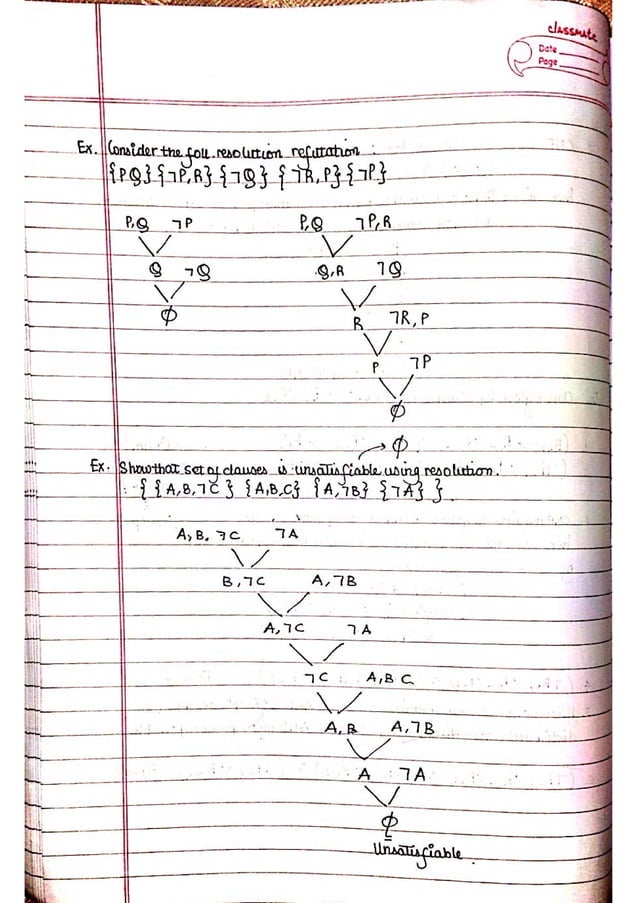 classmate
Date
Page
Ex. Consider the foll. resolution refutation :
{PQ} {¬P, R} {¬Q} {¬R, P} {¬P}
P, Q ¬P P, Q ¬P, R
Q ¬Q Q, R ¬Q
φ R ¬R, P
P ¬P
φ
→ φ
Ex. Show that set of clauses is unsatisfiable using resolution.
: { {A, B, ¬C} {A, B, C} {A, ¬B} {¬A} }.
A, B, ¬C ¬A
B, ¬C A, ¬B
A, ¬C ¬A
¬C A, B C
A, B A, ¬B
A ¬A
φ
Unsatisfiable.